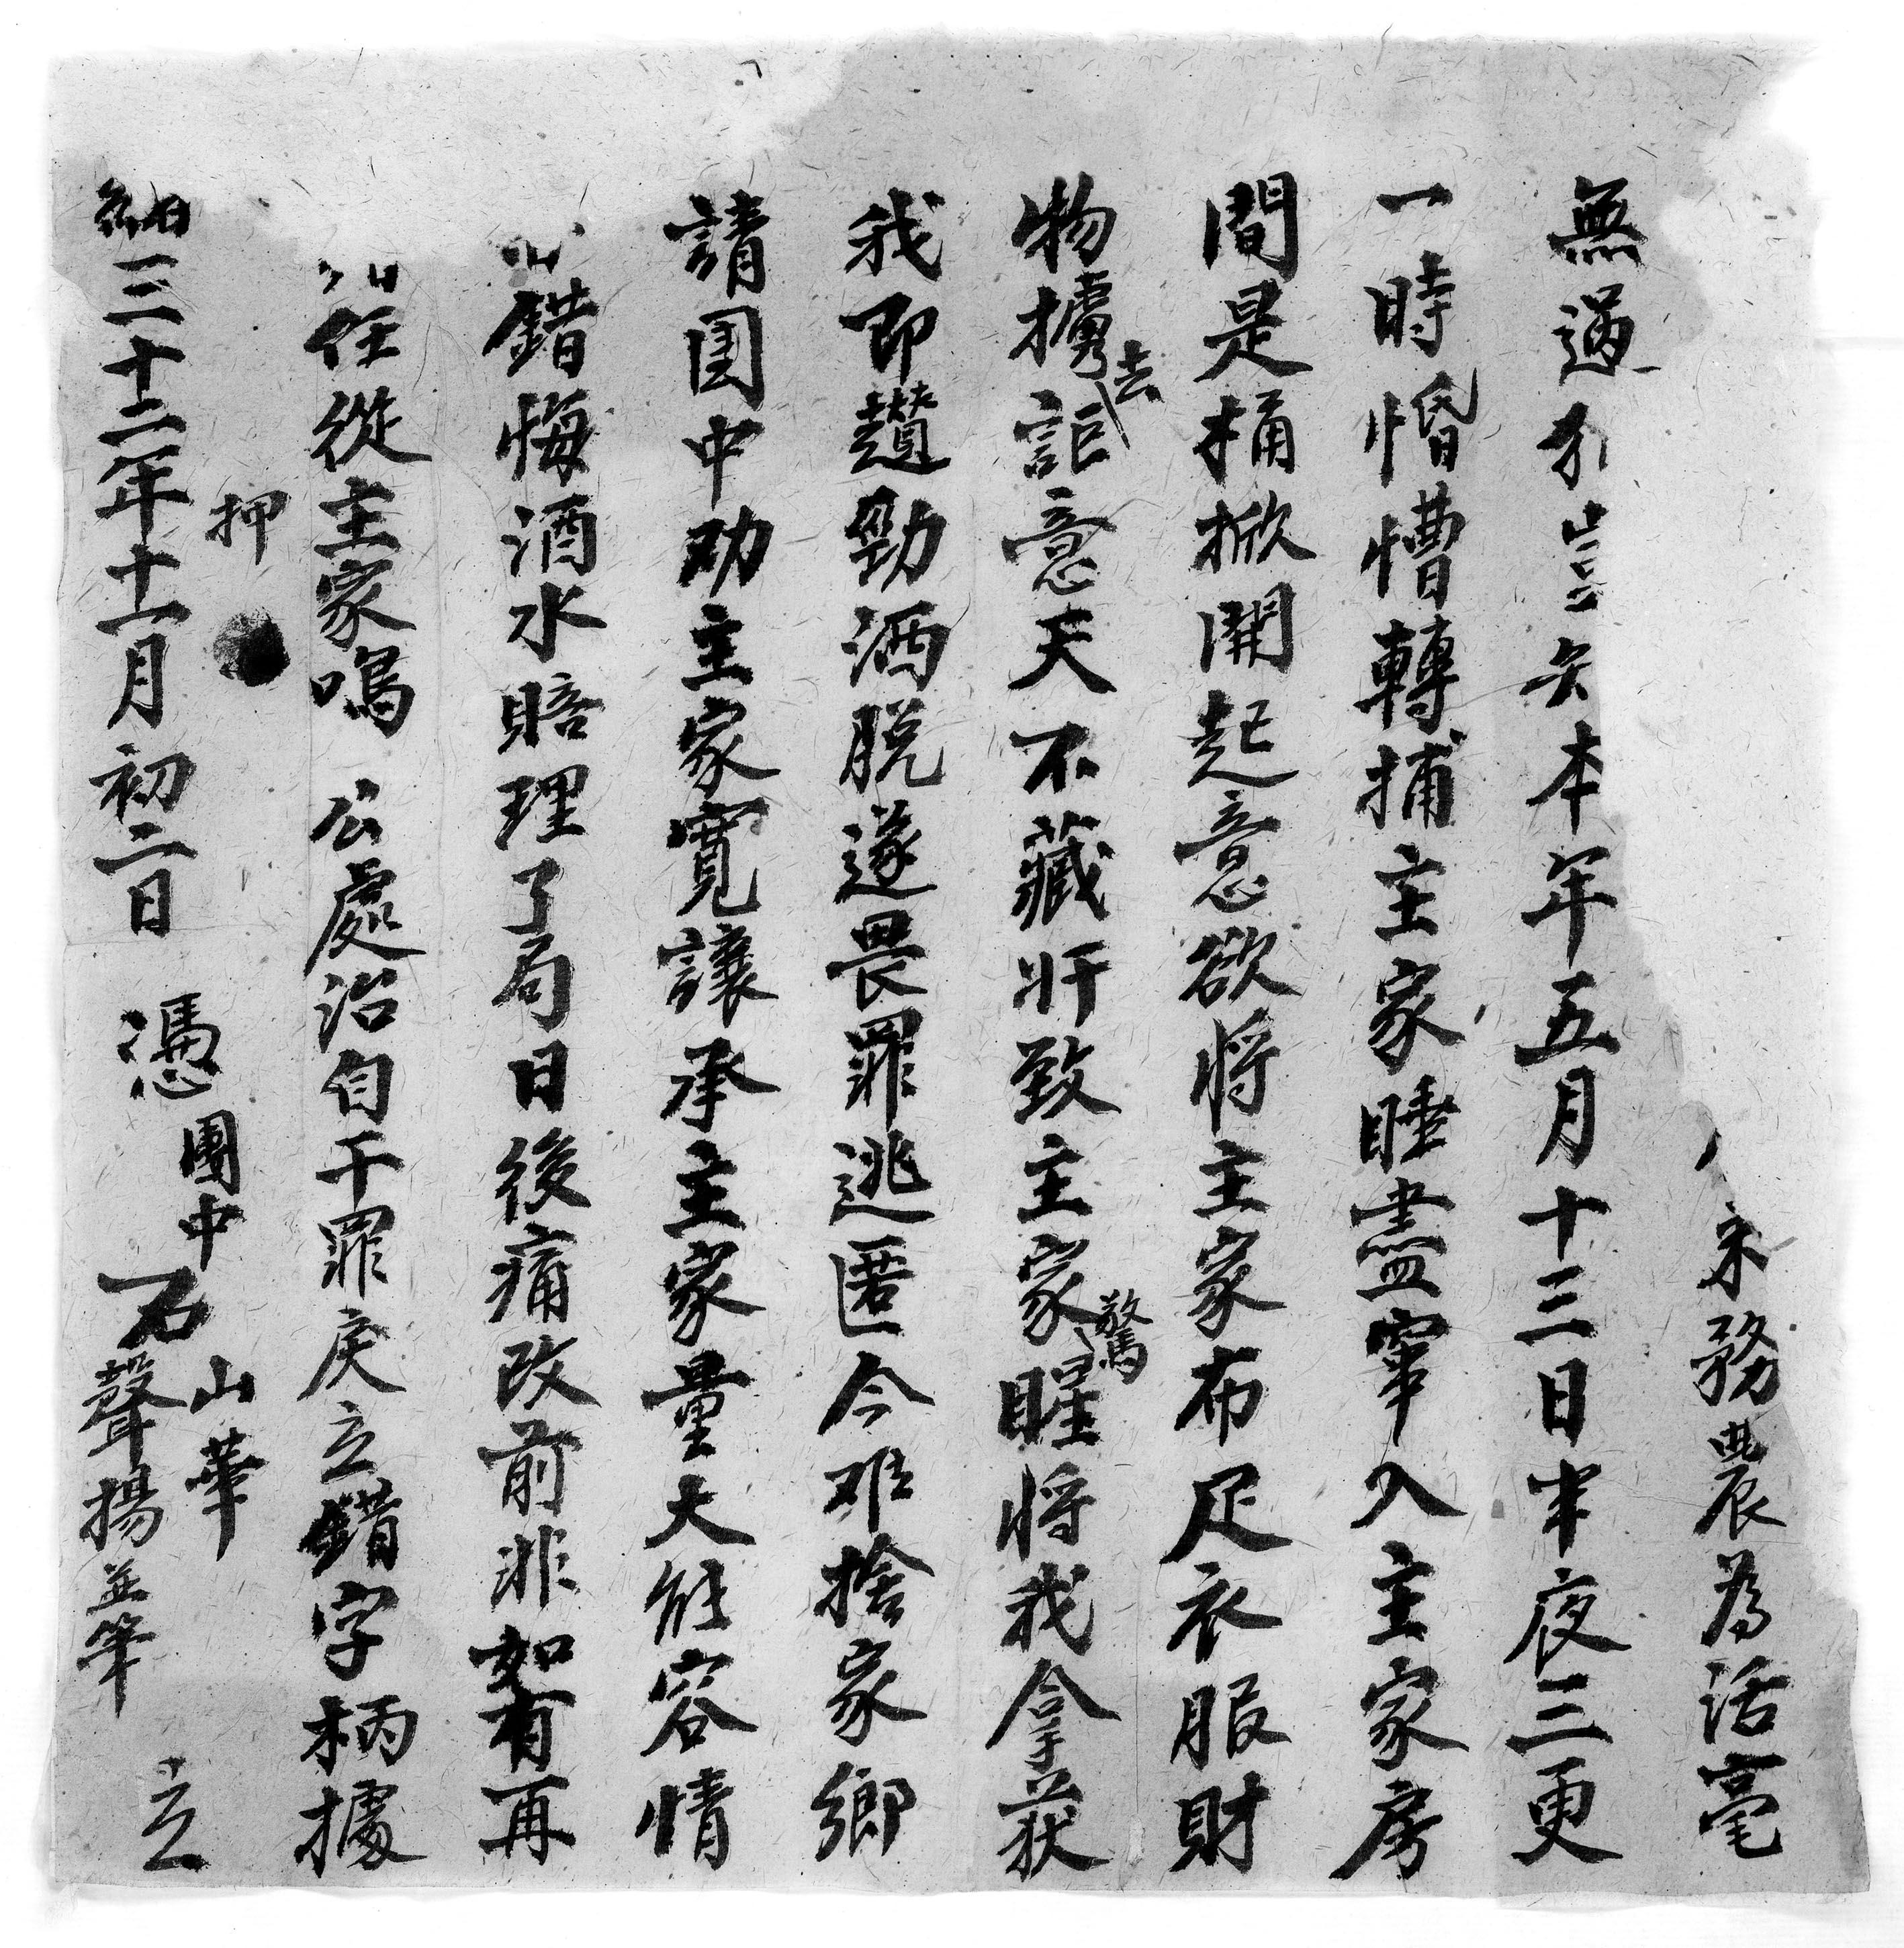 來務農為活毫
無過犯豈矣本年五月十三日半夜三更
一時惛懵轉捕主家睡盡窜入主家房
間是桶掀開起意欲將主家布疋衣服財
物擄去詎意天不藏奸致主家驚醒將我拿获
我即趲勁洒脱遂畏罪逃匿今难捨家鄉
請团中劝主家寬讓承主家量大能容情
錯悔酒水賠理了局日後痛改前非如有再
任從主家鳴 公處治自干罪戾立錯字柄據
押
緒三十二年十一月初二日 憑 團中 石 山華 聲揚並筆 立